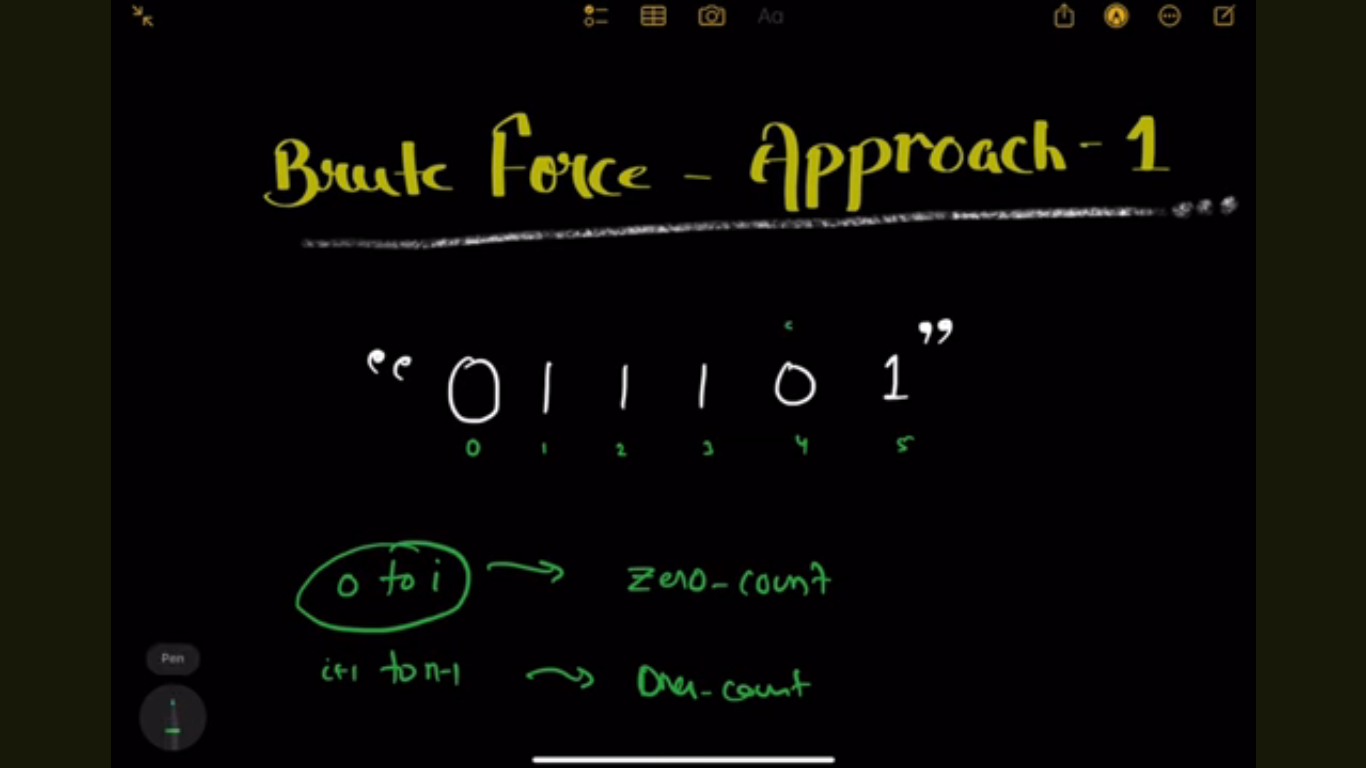 Aa
Brute Force - Approach - 1
“ 0 1 1 1 0 1 ”
0 1 2 3 4 5
0 to i → Zero_count
i+1 to n-1 → Ones_count
Pen